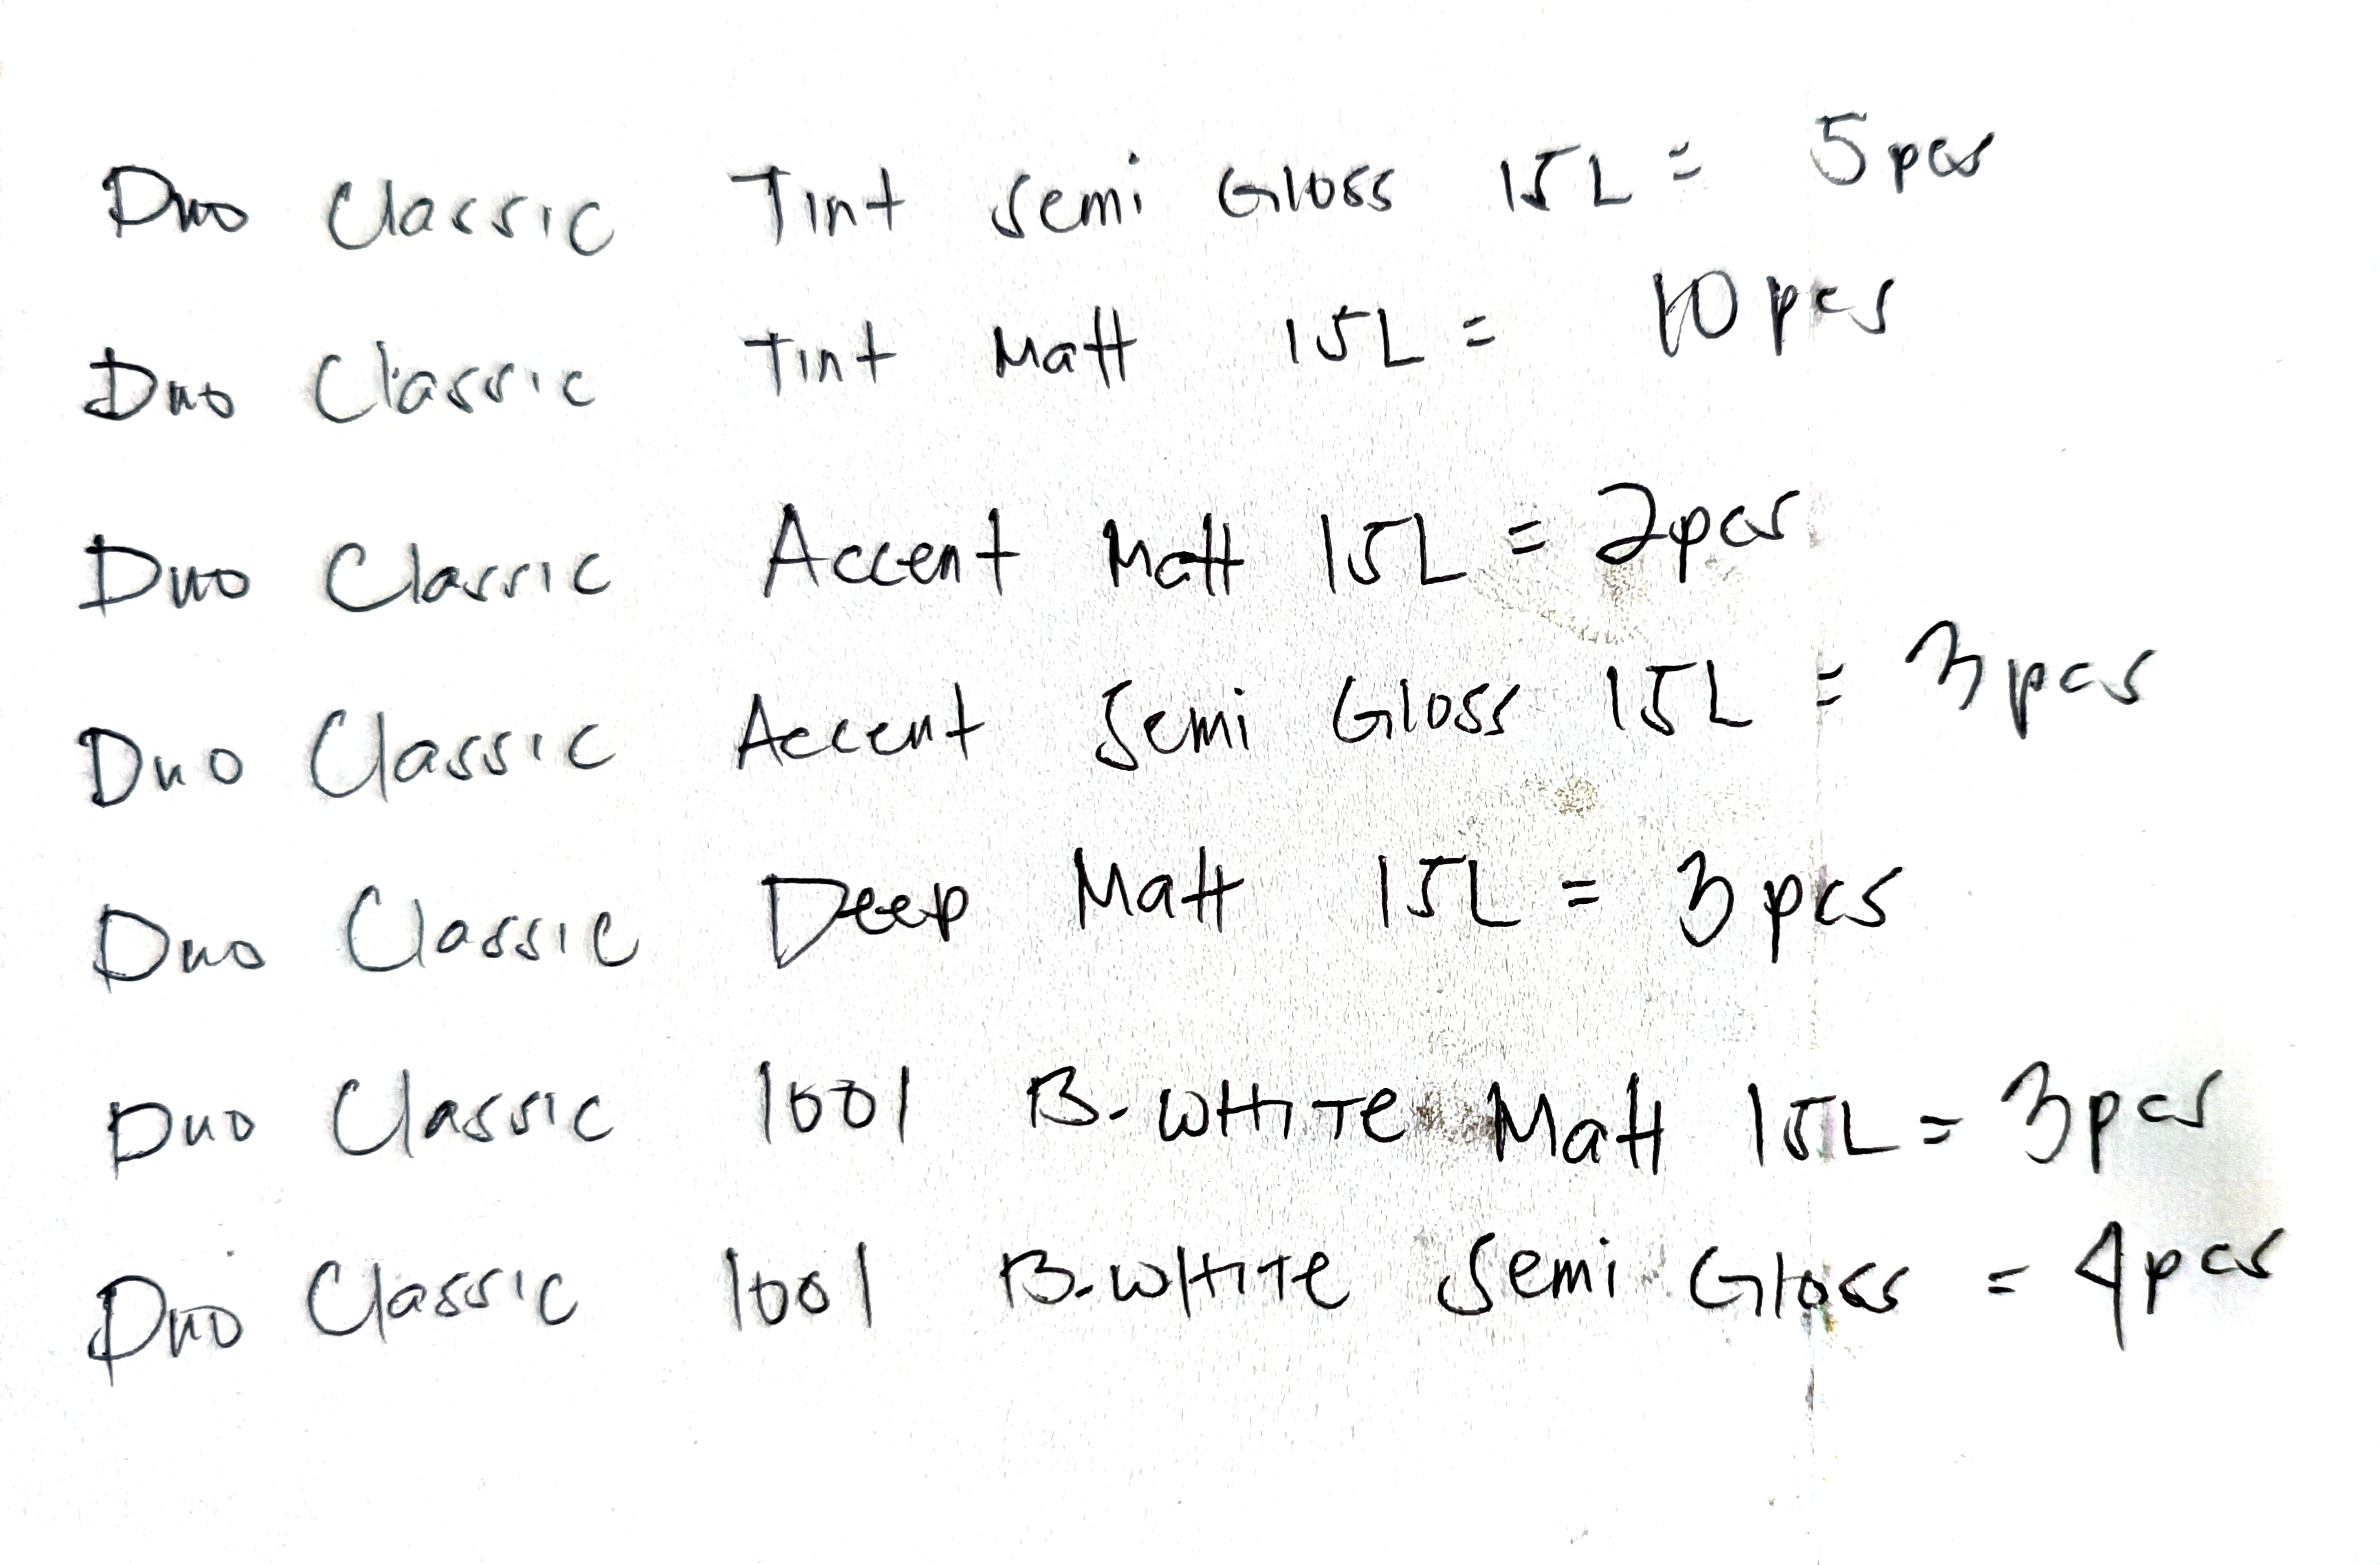 Duo Classic Tint Semi Gloss 15L = 5pcs
Duo Classic Tint Matt 15L = 10pcs
Duo Classic Accent Matt 15L = 2pcs
Duo Classic Accent Semi Gloss 15L = 3pcs
Duo Classic Deep Matt 15L = 3pcs
Duo Classic 1001 B-WHITE Matt 15L = 3pcs
Duo Classic 1001 B-WHITE Semi Gloss = 4pcs